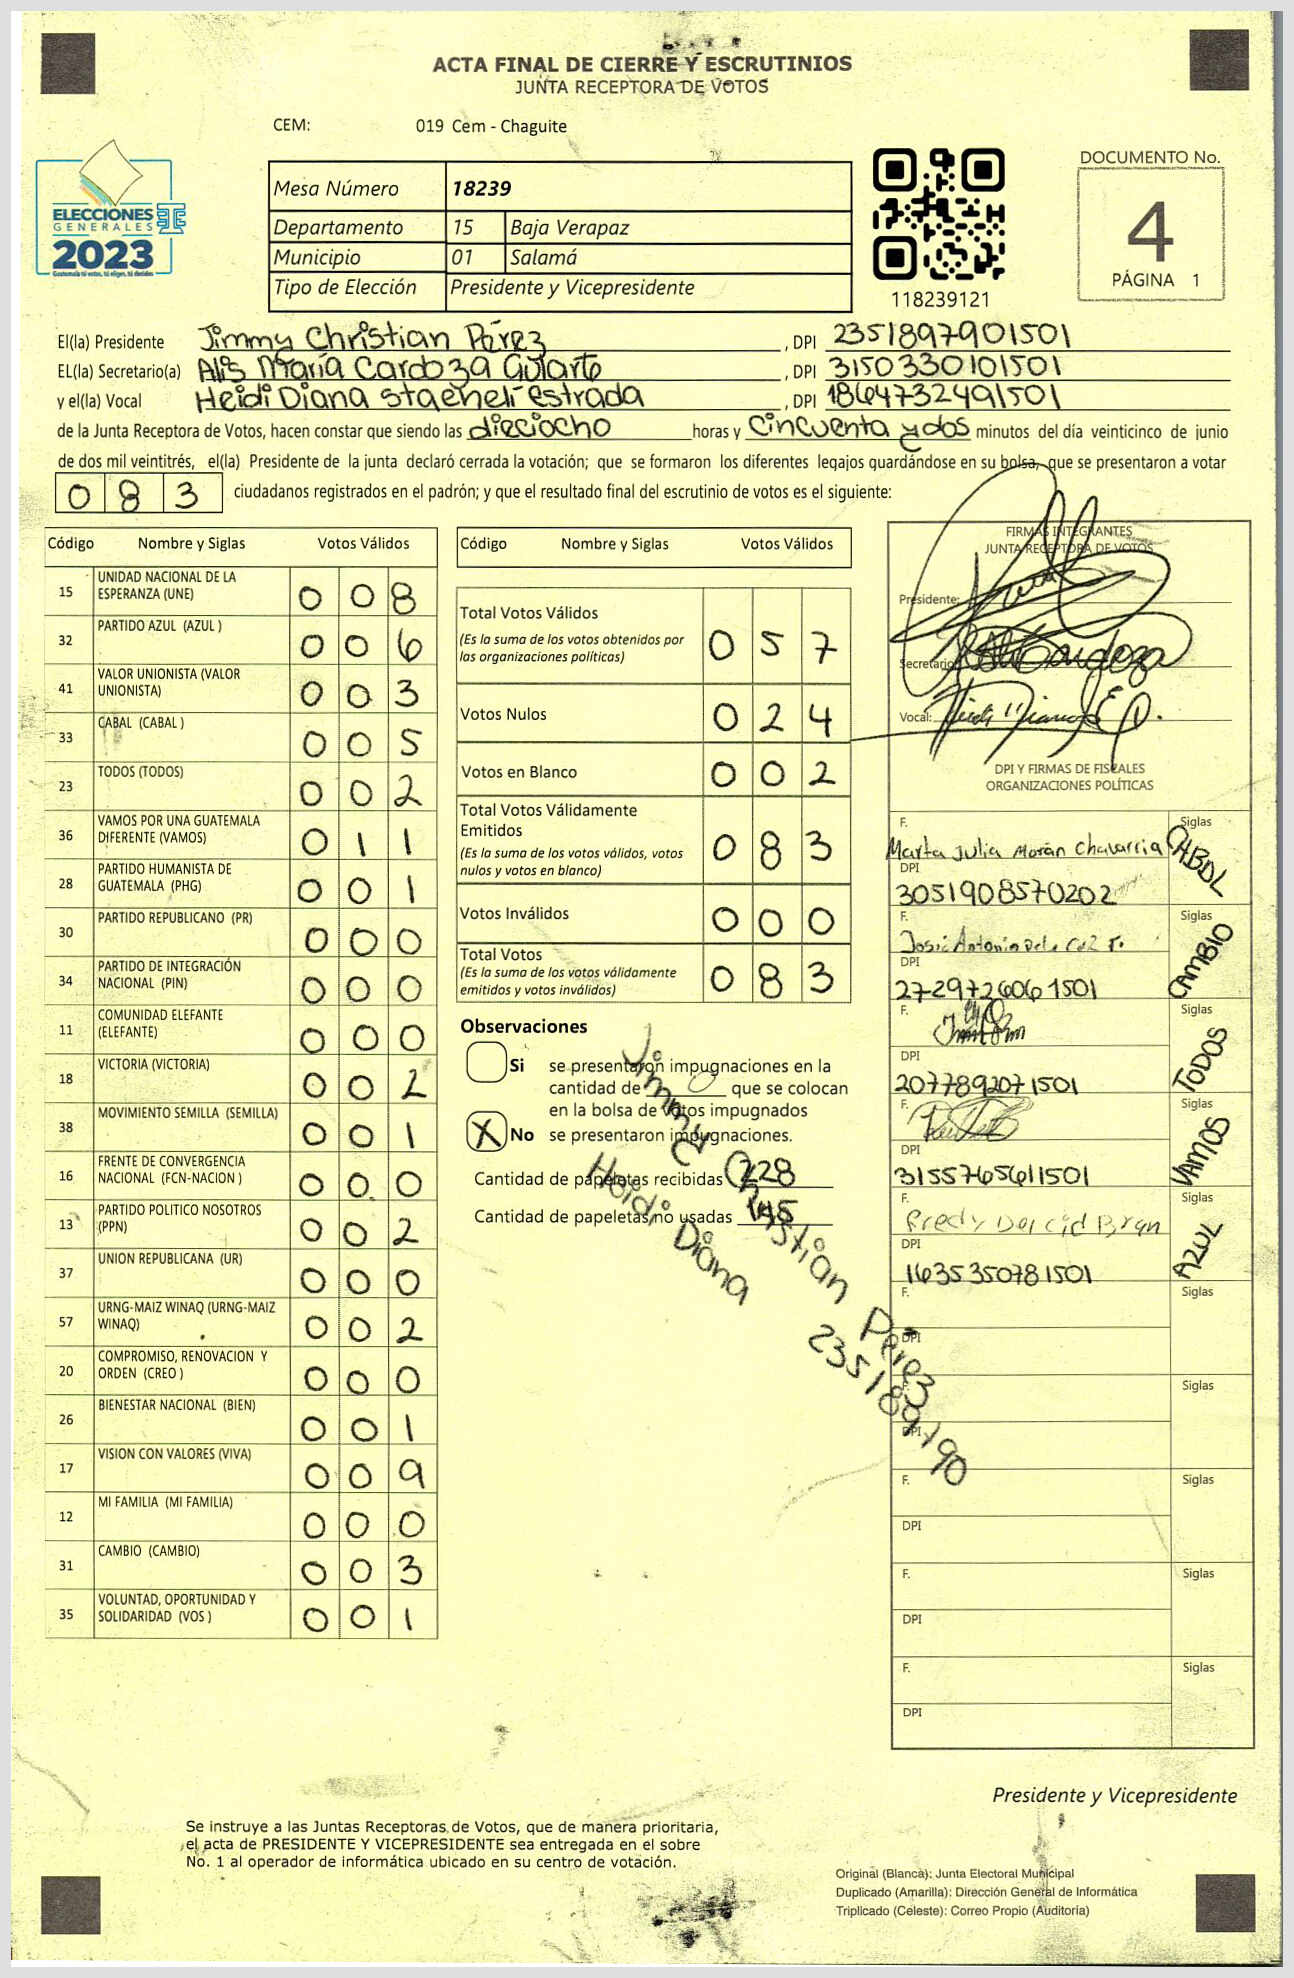 ACTA FINAL DE CIERRE Y ESCRUTINIOS
JUNTA RECEPTORA DE VOTOS
CEM: 019 Cem - Chaguite
ELECCIONES
GENERALES
2023
Guatemala tú votas, tú eliges, tú decides
Mesa Número 18239
Departamento 15 Baja Verapaz
Municipio 01 Salamá
Tipo de Elección Presidente y Vicepresidente
118239121
DOCUMENTO No.
4
PÁGINA 1
El(la) Presidente Jimmy Christian Pérez , DPI 2351897901501
EL(la) Secretario(a) Alis María Cardoza , DPI 3150330101501
y el(la) Vocal Heidi Diana Staeheli estrada , DPI 1864732491501
de la Junta Receptora de Votos, hacen constar que siendo las dieciocho horas y Cincuenta y dos minutos del día veinticinco de junio
de dos mil veintitrés, el(la) Presidente de la junta declaró cerrada la votación; que se formaron los diferentes legajos guardándose en su bolsa, que se presentaron a votar
0 8 3 ciudadanos registrados en el padrón; y que el resultado final del escrutinio de votos es el siguiente:
Código Nombre y Siglas Votos Válidos
15 UNIDAD NACIONAL DE LA ESPERANZA (UNE) 0 0 8
32 PARTIDO AZUL (AZUL ) 0 0 6
41 VALOR UNIONISTA (VALOR UNIONISTA) 0 0 3
33 CABAL (CABAL ) 0 0 5
23 TODOS (TODOS) 0 0 2
36 VAMOS POR UNA GUATEMALA DIFERENTE (VAMOS) 0 1 1
28 PARTIDO HUMANISTA DE GUATEMALA (PHG) 0 0 1
30 PARTIDO REPUBLICANO (PR) 0 0 0
34 PARTIDO DE INTEGRACIÓN NACIONAL (PIN) 0 0 0
11 COMUNIDAD ELEFANTE (ELEFANTE) 0 0 0
18 VICTORIA (VICTORIA) 0 0 2
38 MOVIMIENTO SEMILLA (SEMILLA) 0 0 1
16 FRENTE DE CONVERGENCIA NACIONAL (FCN-NACION ) 0 0 0
13 PARTIDO POLITICO NOSOTROS (PPN) 0 0 2
37 UNION REPUBLICANA (UR) 0 0 0
57 URNG-MAIZ WINAQ (URNG-MAIZ WINAQ) 0 0 2
20 COMPROMISO, RENOVACION Y ORDEN (CREO ) 0 0 0
26 BIENESTAR NACIONAL (BIEN) 0 0 1
17 VISION CON VALORES (VIVA) 0 0 9
12 MI FAMILIA (MI FAMILIA) 0 0 0
31 CAMBIO (CAMBIO) 0 0 3
35 VOLUNTAD, OPORTUNIDAD Y SOLIDARIDAD (VOS ) 0 0 1
Código Nombre y Siglas Votos Válidos
Total Votos Válidos 0 5 7
(Es la suma de los votos obtenidos por
las organizaciones políticas)
Votos Nulos 0 2 4
Votos en Blanco 0 0 2
Total Votos Válidamente
Emitidos 0 8 3
(Es la suma de los votos válidos, votos
nulos y votos en blanco)
Votos Inválidos 0 0 0
Total Votos 0 8 3
(Es la suma de los votos válidamente
emitidos y votos inválidos)
Observaciones
Si se presentaron impugnaciones en la
cantidad de 0 que se colocan
en la bolsa de votos impugnados
X No se presentaron impugnaciones.
Cantidad de papeletas recibidas 228
Cantidad de papeletas no usadas 145
Jimmy Christian Pérez
Heidi Diana
235189790
FIRMAS INTEGRANTES
JUNTA RECEPTORA DE VOTOS
Presidente:
Secretario:
Vocal:
DPI Y FIRMAS DE FISCALES
ORGANIZACIONES POLÍTICAS
F. Siglas
Marta Julia Morán Chavarria CABAL
DPI
3051908570202
F. Siglas
José Antonio CAMBIO
DPI
2729726061501
F. Siglas
TODOS
DPI
2077892071501
F. Siglas
VAMOS
DPI
3155765611501
F. Siglas
Fredy Del cid Bran AZUL
DPI
1635350781501
F. Siglas
DPI
F. Siglas
DPI
F. Siglas
DPI
F. Siglas
DPI
F. Siglas
DPI
Presidente y Vicepresidente
Se instruye a las Juntas Receptoras de Votos, que de manera prioritaria,
el acta de PRESIDENTE Y VICEPRESIDENTE sea entregada en el sobre
No. 1 al operador de informática ubicado en su centro de votación.
Original (Blanca): Junta Electoral Municipal
Duplicado (Amarilla): Dirección General de Informática
Triplicado (Celeste): Correo Propio (Auditoría)